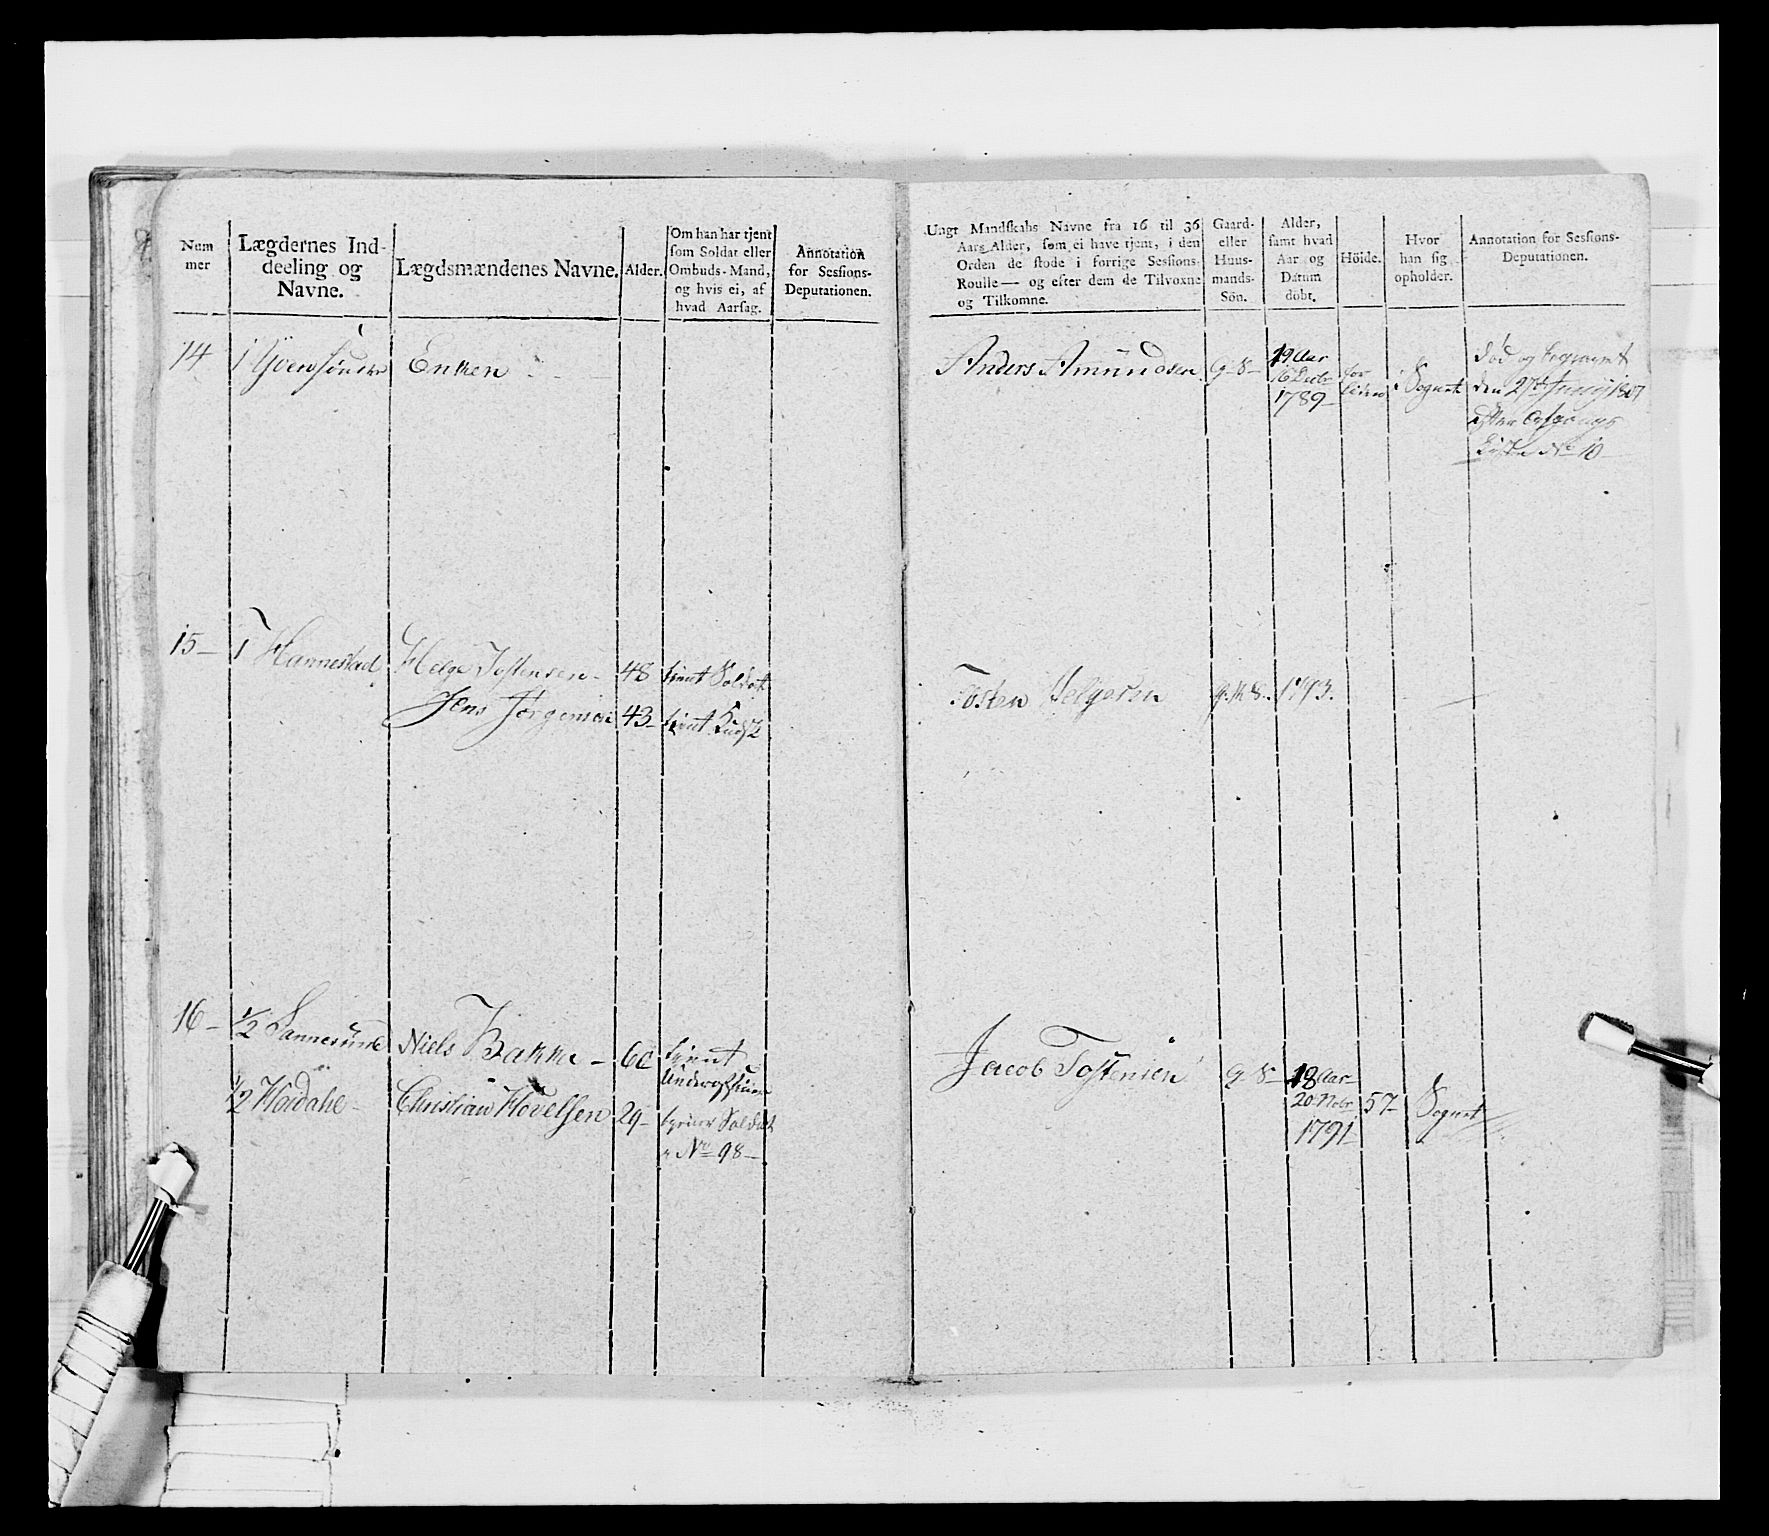 Num
mer
Lægdernes Ind-
deeling og
Navne.
Lægdsmændenes Navne.
Alder.
Om han har tjent
som Soldat eller
Ombuds-Mand,
og hvis ei, af
hvad Aarsag.
Annotation
for Sessions-
Deputationen.
14
1
Enken
15 1 Hannestad
Helge Tostensen 48 tient Soldat
Jens Jørgensen 43 tient
16 1/2 Sannesund
Niels Bakke 60 tient
Underofficeer
1/2
Christian 29 tiener Soldat
No 98
Ungt Mandskabs Navne fra 16 til 36
Aars Alder, som ei have tjent, i den
Orden de stode i forrige Sessions-
Roulle — og efter dem de Tilvoxne
og Tilkomne.
Gaard-
eller
Huus-
mands-
Sön.
Alder,
samt hvad
Aar og
Datum
döbt.
Höide.
Hvor
han sig
opholder.
Annotation for Sessions-
Deputationen.
Anders Amundsen g S 19 Aar
16 Decbr
1789
for
liden
i Sognet
død og begravet
den 27de 1807
efter
Liste No 10
Tosten Helgesen 1793.
Jacob Tostensen g S 18 Aar
20 Nobr
1791
57 Sognet